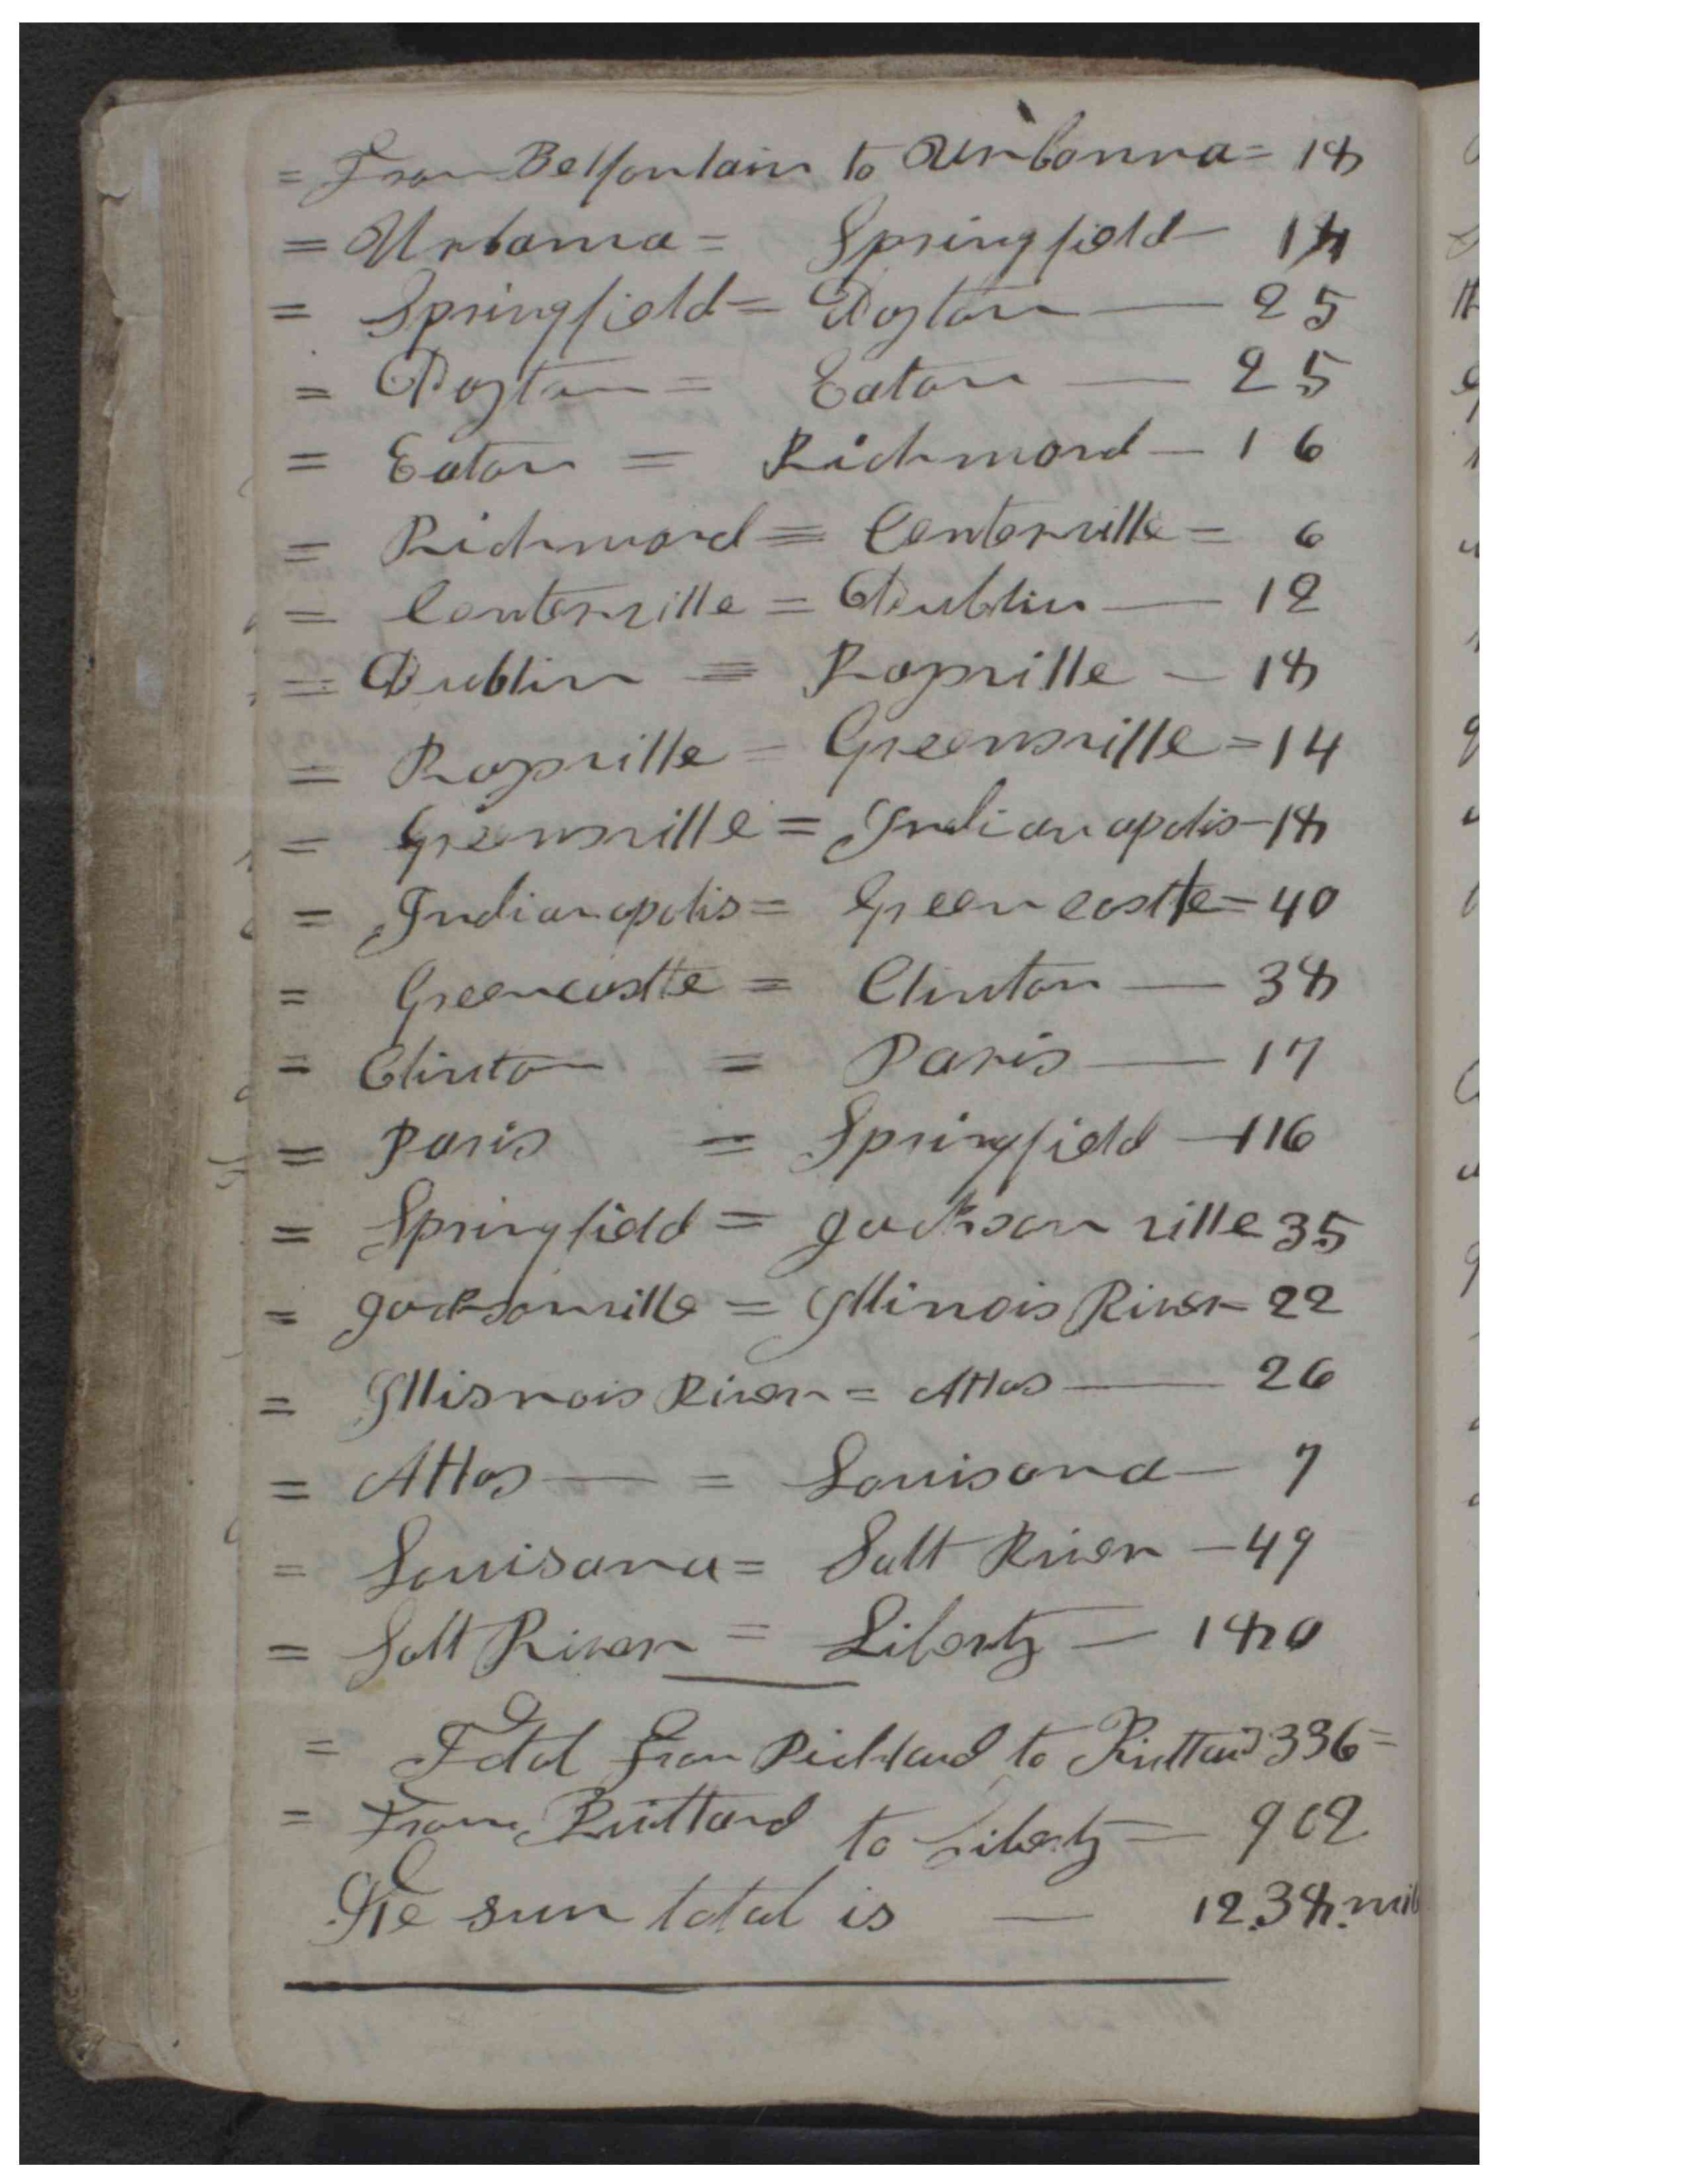 = From Belfontain to Urbanna = 18
= Urbanna = Springfield — 14
= Springfield = Dayton — 25
= Dayton = Eaton — 25
= Eaton = Richmond — 16
= Richmond = Centerville = 6
= Centerville = Dublin — 12
= Dublin = Rapville — 18
= Rapville = Greensville = 14
= Greensville = Indianapolis — 18
= Indianapolis = Green castle = 40
= Greencastle = Clinton — 38
= Clinton = Paris — 17
= Paris = Springfield — 116
= Springfield = Jackson ville 35
= Jacksonville = Illinois River = 22
= Illisnois River = Attas — 26
= Attas — = Louisana — 7
= Louisana = Salt River — 49
= Salt River = Liberty — 180
= Total from to 336 =
= From to Liberty — 902
The sum total is — 1238. mil